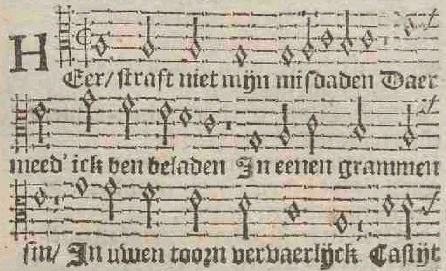 HEer/ straft niet mijn misdaden Daer
meed' ick ben beladen In eenen grammen
sin/ In uwen toorn vervaerlijck Castijt